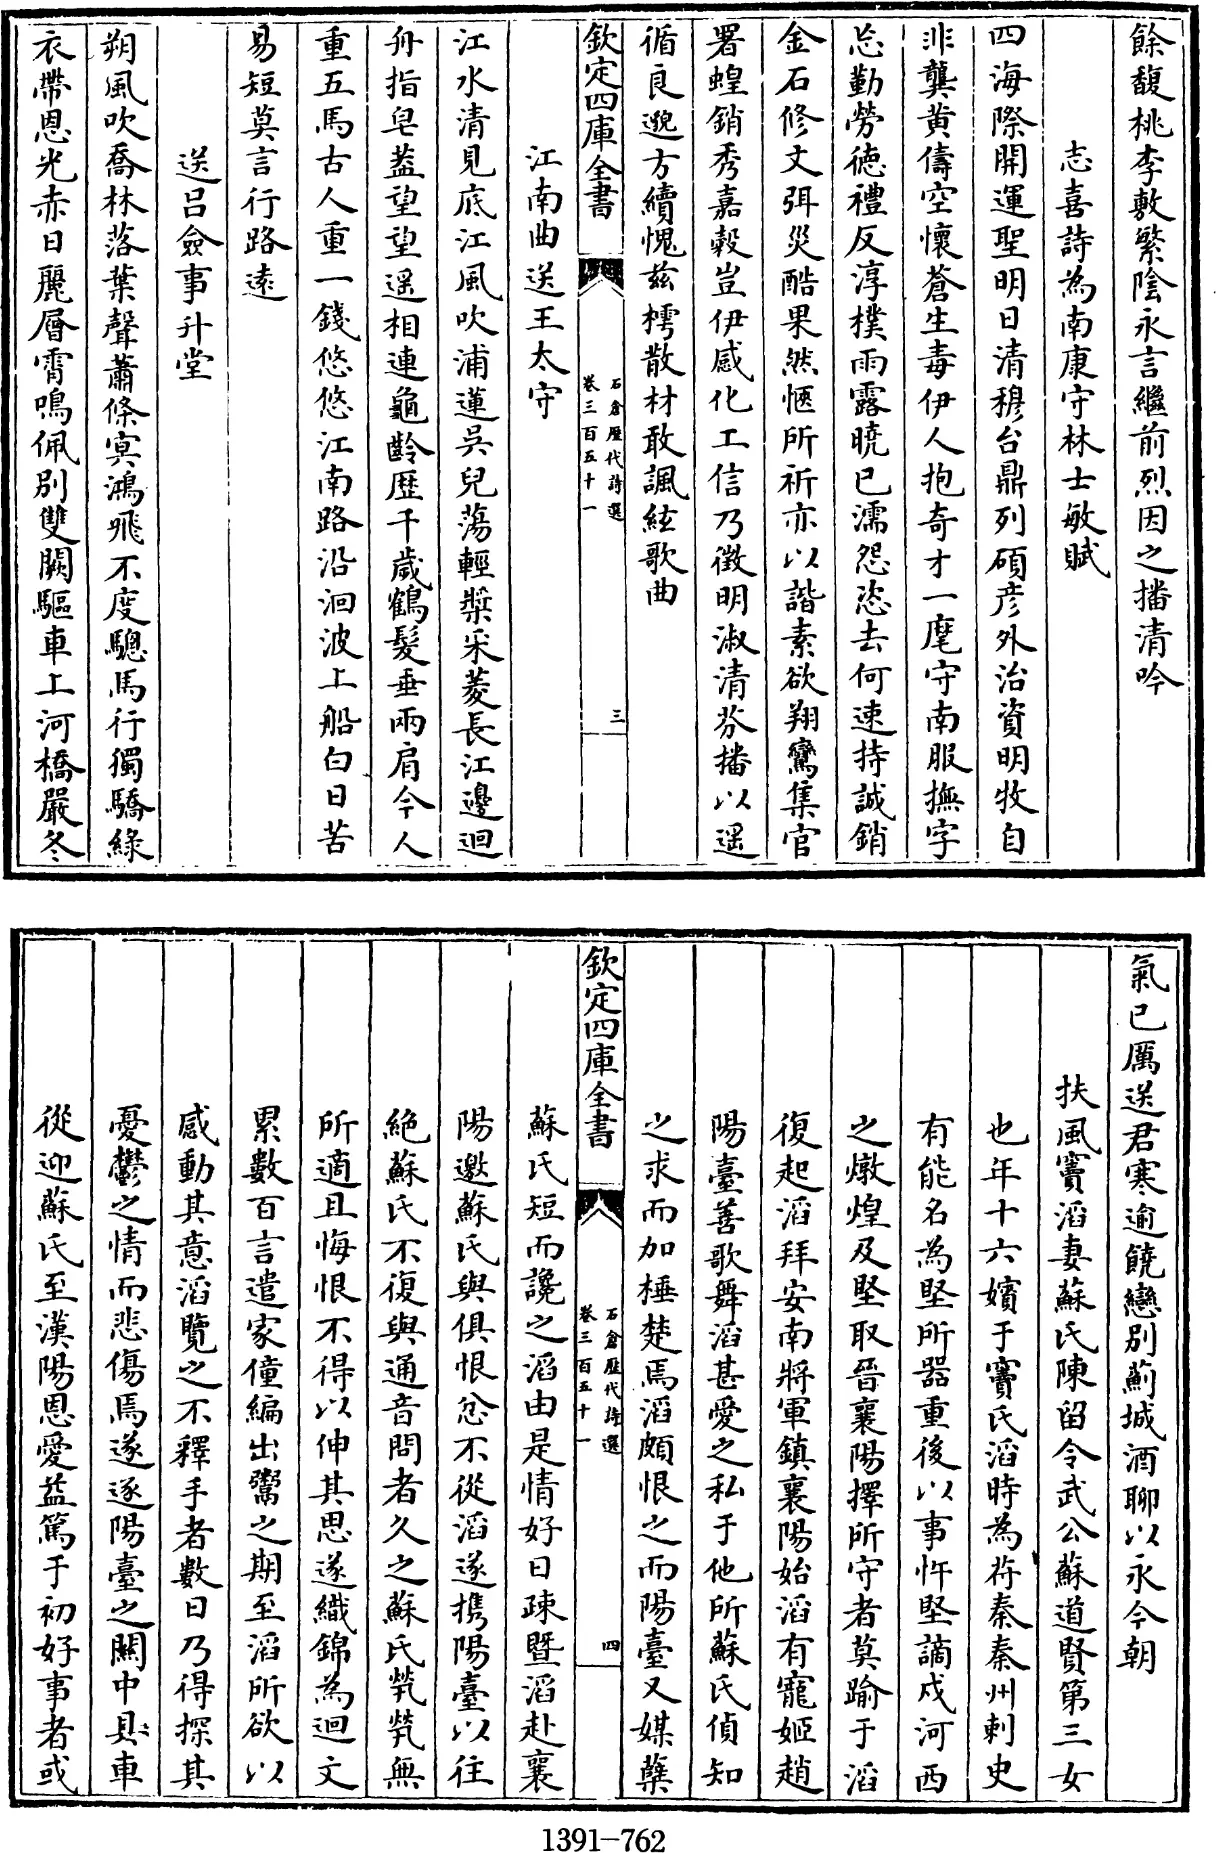 餘馥桃李敷繁陰永言繼前烈因之播清吟
志喜詩為南康守林士敏賦
四海際開運聖明日清穆台鼎列碩彦外治資明牧自
非龔黄儔空懷蒼生毒伊人抱奇才一麾守南服撫字
忘勤勞德禮反淳樸雨露曉已濡怨恣去何速持誠銷
金石修文弭災酷果然愜所祈亦以諧素欲翔鸞集官
署蝗銷秀嘉穀豈伊感化工信乃徵明淑清芬播以遥
循良邈方續愧兹樗散材敢諷絃歌曲
欽定四庫全書
石倉歷代詩選
卷三百五十一
三
江南曲送王太守
江水清見底江風吹浦蓮吳兒蕩輕槳采菱長江邊迴
舟指皂蓋望望遥相連龜齡歷千歲鶴髮垂兩肩今人
重五馬古人重一錢悠悠江南路沿洄波上船白日苦
易短莫言行路遠
送吕僉事升堂
朔風吹喬林落葉聲蕭條冥鴻飛不度驄馬行獨驕緑
衣帶恩光赤日麗層霄鳴佩别雙闕驅車上河橋嚴冬
氣已厲送君寒逾饒戀别薊城酒聊以永今朝
扶風竇滔妻蘇氏陳留令武公蘇道賢第三女
也年十六嬪于竇氏滔時為苻秦秦州刺史
有能名為堅所器重後以事忤堅謫戍河西
之燉煌及堅取晉襄陽擇所守者莫踰于滔
復起滔拜安南將軍鎮襄陽始滔有寵姬趙
陽臺善歌舞滔甚愛之私于他所蘇氏偵知
之求而加棰楚焉滔頗恨之而陽臺又媒蘖
欽定四庫全書
石倉歷代詩選
卷三百五十一
四
蘇氏短而讒之滔由是情好日疎暨滔赴襄
陽邀蘇氏與俱恨忿不從滔遂携陽臺以往
絶蘇氏不復與通音問者久之蘇氏煢煢無
所適且悔恨不得以伸其思遂織錦為迴文
累數百言遣家僮編出鬻之期至滔所欲以
感動其意滔覽之不釋手者數日乃得探其
憂鬱之情而悲傷焉遂遂陽臺之關中具車
從迎蘇氏至漢陽恩愛益篤于初好事者或
1391-762